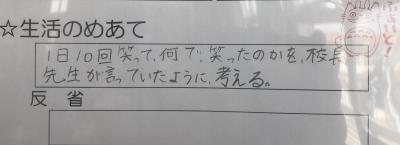 ☆生活のめあて
1日10回笑って、何で、笑ったのかを、校長
先生が言っていたように、考える。
反省